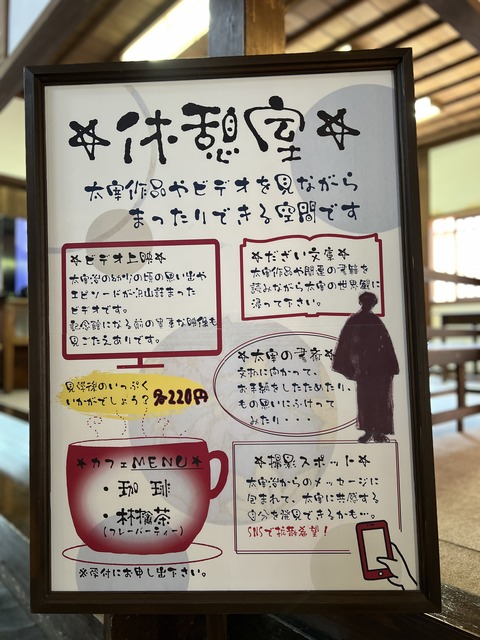 ☆休憩室☆
太宰作品やビデオを見ながら
まったりできる空間です
☆ビデオ上映☆
太宰治の幼少の頃の思い出や
エピソードが沢山詰まった
ビデオです。
記念館になる前の貴重な映像も
見ごたえありです。
☆だざい文庫☆
太宰作品や関連の書籍を
読みながら太宰の世界観に
浸って下さい。
☆太宰の書斎☆
文机に向かって、
お手紙をしたためたり、
もの思いにふけって
みたり・・・
見学後のいっぷく
いかがでしょう?各220円
☆カフェMENU☆
・珈琲
・林檎茶
(フレーバーティー)
※受付にお申し出下さい。
☆撮影スポット☆
太宰治からのメッセージに
包まれて、太宰に共感する
自分を発見できるかも…。
SNSで拡散希望!